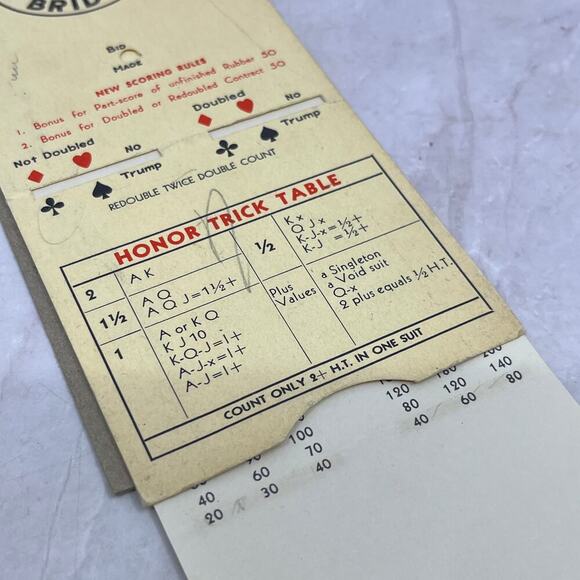 BRID
BID
MADE
NEW SCORING RULES
1. Bonus for Part-score of unfinished Rubber 50
2. Bonus for Doubled or Redoubled Contract 50
Not Doubled
No
Trump
Doubled
No
Trump
REDOUBLE TWICE DOUBLE COUNT
HONOR TRICK TABLE
2 A K
1½ A Q
A Q J=1½+
1 A or K Q
K J 10
K-Q-J=1+
A-J-x=1+
A-J=1+
½ K x
Q J x
K-J-x=½+
K-J =½+
Plus Values
a Singleton
a Void suit
Q-x
2 plus equals ½ H.T.
COUNT ONLY 2+ H.T. IN ONE SUIT
120 160 200
100 120 140
80 100
90
60 70 80 120 140
40 60 70 80 120
20 30 40 40 60 80